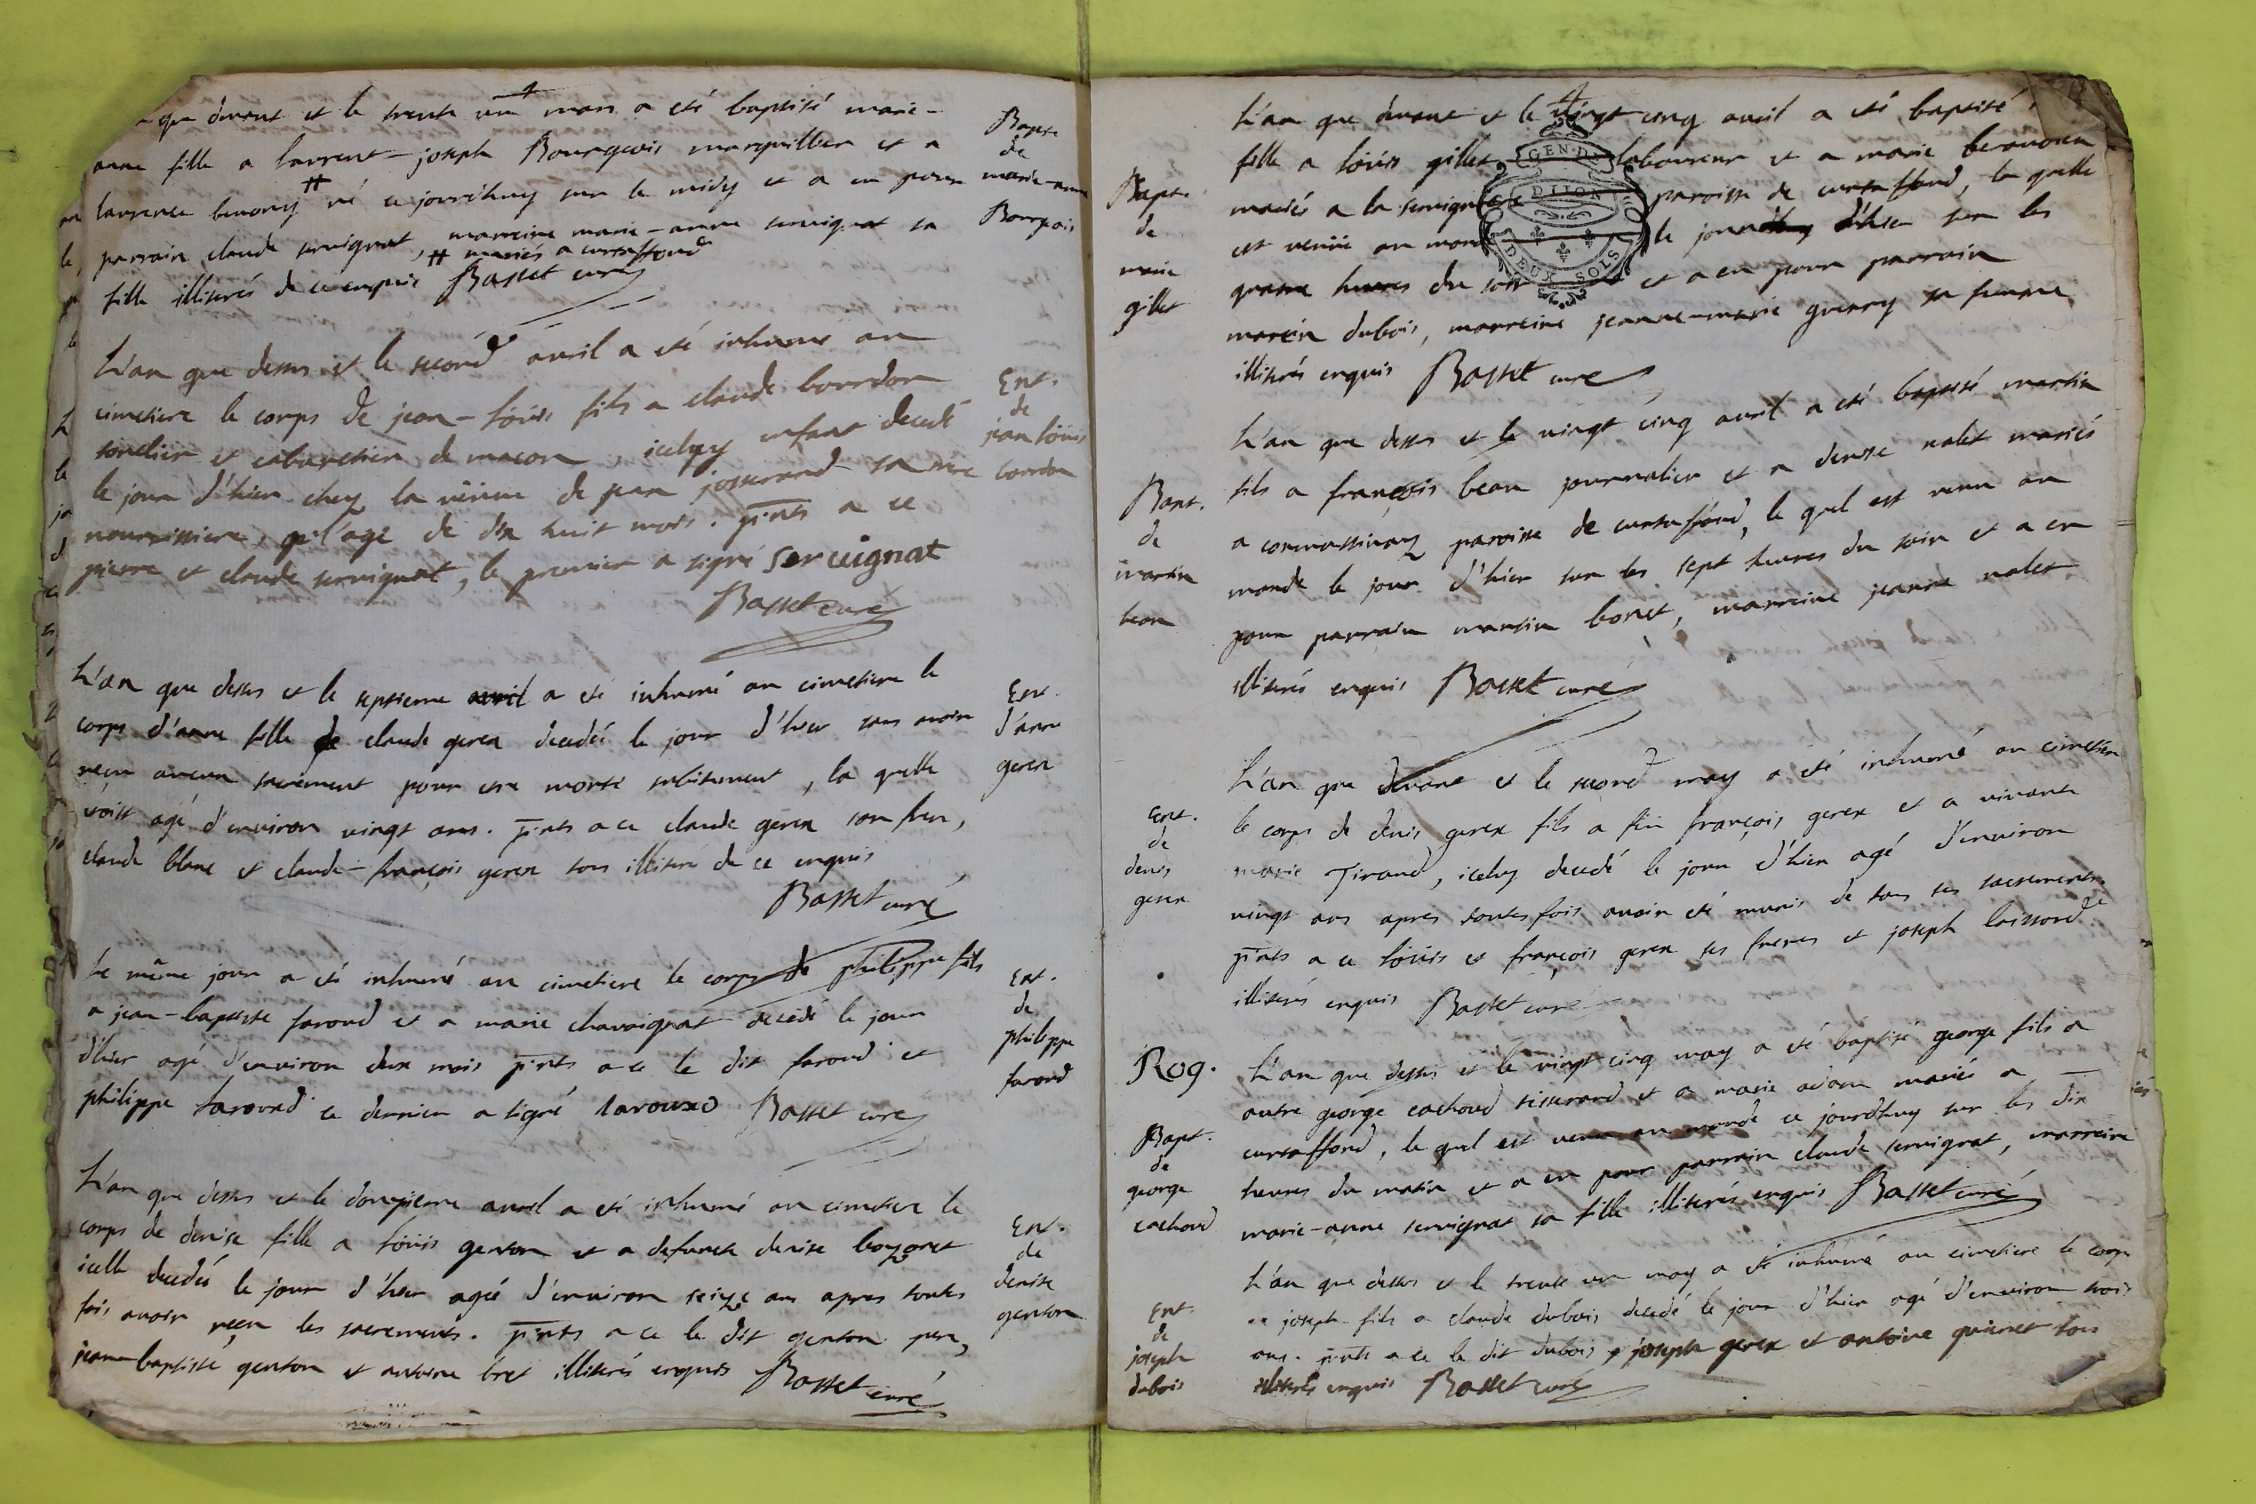 que devant et le trente un mars a eté baptisé marie-
anne fille a laurent-joseph Bourgeois marguillier et a
laurence # né ce jourd'huy sur le midy et a eu pour
parrain claude servignat, marreine marie-anne servignat sa
# mariés a curtaffond
fille illiterés de ce enquis Basset curé
Bapte
de
marie-anne
Bourgeois
L'an que dessus et le second avril a eté inhumé au
cimetiere le corps de jean-loüis fils a claude bourdon
tonelier et cabaretier de macon, iceluy enfant decedé
le jour d'hier chez la vëuve de jean josserand sa mere
nourrissiere, agé de dix huit mois. pnts a ce
pierre et claude servignat, le premier a signé servignat
Basset curé
Ent.
de
jean loüis
bourdon
L'an que dessus et le septieme avril a eté inhumé au cimetiere le
corps d'anne fille de claude gerex decedée le jour d'hier sans avoir
reçu aucun sacrement pour etre morte subitement, la quelle
étoit agé d'environ vingt ans. pnts a ce claude gerex son frere,
claude blanc et claude-françois gerex tous illiteré de ce enquis
Basset curé
Ent.
d'anne
gerex
Le même jour a eté inhumé au cimetiere le corps de philippe fils
a jean-baptiste faroud et a marie chavaignat decedé le jour
d'hier agé d'environ deux mois pnts a ce le dit faroud et
philippe faroud ce dernier a signé faroux Basset curé
Ent.
de
philippe
faroud
L'an que dessus et le douzieme avril a eté inhumé au cimetiere le
corps de denise fille a loüis genton et a defuncte denise bozonet
icelle decedée le jour d'hier agée d'environ seize ans apres toutes
fois avoir reçu les sacrements. pnts a ce le dit genton pere,
jean-baptiste genton et antoine bret illiterés enquis Basset curé
Ent.
de
denise
genton
L'an que devant et le vingt cinq avril a eté baptisé
fille a loüis gillet laboureur et a marie
mariés a la paroisse de curtaffond, la quelle
est venüe au monde le jour d'hier sur les
quatre heures du soir et a eu pour parrain
martin dubois, marreine jeanne-marie guerry sa femme
illiterés enquis Basset curé
GEN. DE
DIJON
DEUX SOLS
Bapt.
de
marie
gillet
L'an que dessus et le vingt cinq avril a eté baptisé martin
fils a françois beau journalier et a denise nalet mariés
a cormassinay paroisse de curtaffond, le quel est venu au
monde le jour d'hier sur les sept heures du soir et a eu
pour parrain martin boret, marreine jeanne nalet
illiterés enquis Basset curé
Bapt.
de
martin
beau
L'an que devant et le second may a eté inhumé au cimetiere
le corps de denis gerex fils a feu françois gerex et a vivante
marie Tirand, iceluy decedé le jour d'hier agé d'environ
vingt ans apres toutesfois avoir eté munis de tous ses sacrements
pnts a ce loüis et françois gerex ses freres et joseph
illiterés enquis Basset curé
Ent.
de
denis
gerex
Rog. L'an que dessus et le vingt cinq may a eté baptisé george fils a
autre george cachoud tisserand et a marie adam mariés a
curtaffond, le quel est venu au monde ce jourd'huy sur les dix
heures du matin et a eu pour parrain claude servignat, marreine
marie-anne servignat sa fille illiterés enquis Basset curé
Bapt.
de
george
cachoud
L'an que dessus et le trente un may a eté inhumé au cimetiere le corps
de joseph fils a claude dubois decedé le jour d'hier agé d'environ trois
ans. pnts a ce le dit dubois, joseph gerex et antoine quienet tous
illiterés enquis Basset curé
Ent.
de
joseph
dubois